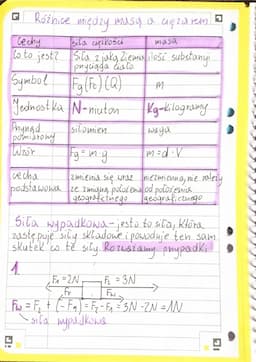 Różnice między masą a ciężarem
Cechy siła ciężkości masa
Co to jest? Siła z jaką Ziemia przyciąga ciało ilość substancji
Symbol Fg (Fc) (Q) m
Jednostka N-niuton Kg-kilogramy
Przyrząd pomiarowy siłomierz waga
Wzór Fg = m · g m = d · V
cecha podstawowa zmienia się wraz ze zmianą położenia geograficznego niezmienna, nie zależy od położenia geograficznego
Siła wypadkowa - jest to siła, która
zastępuje siły składowe i powoduje ten sam
skutek co te siły. Rozważamy przypadki:
1.
F₂ = 2N F₁ = 3N
Fw
Fw = F₁ + (-F₂) = F₁ - F₂ = 3N - 2N = 1N
siła wypadkowa